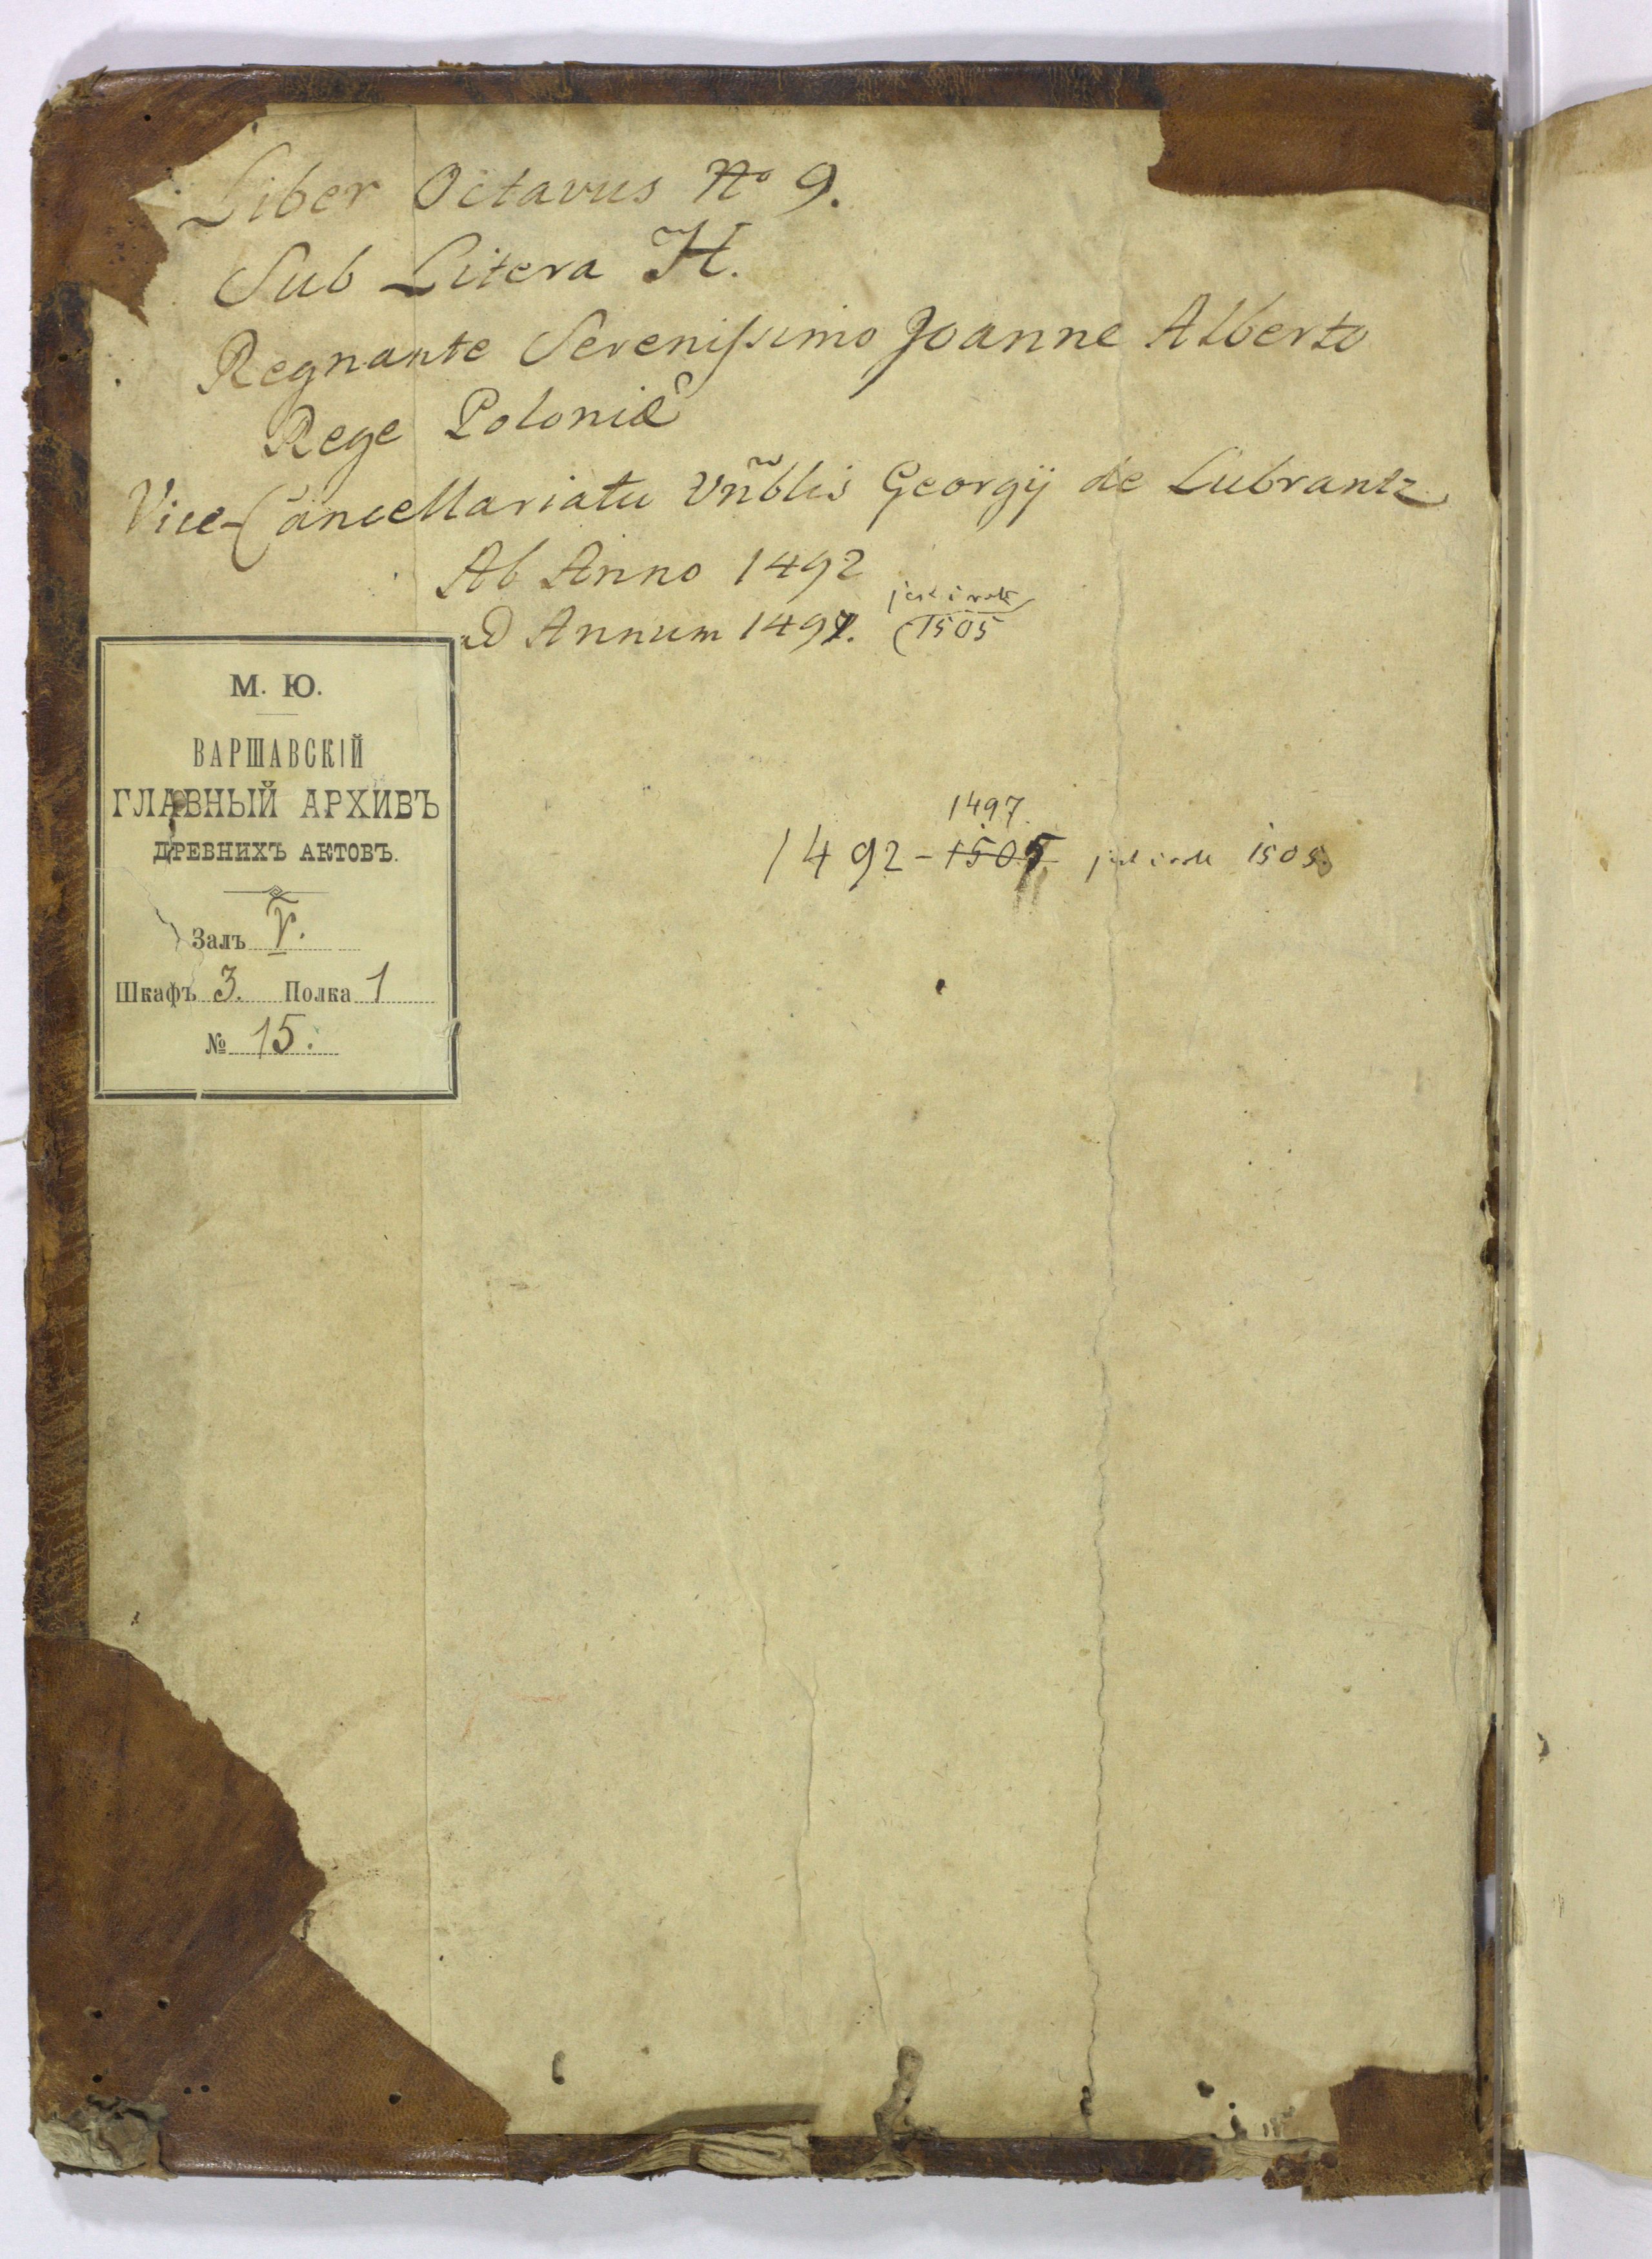 Liber Octavus No 9.
Sub Litera H.
Regnante Serenissimo Joanne Alberto
Rege Poloniæ
Vice-Cancellariatu Vnãblis Georgÿ de Lubrantz
Ab Anno 1492
jest i rok
ad Annum 1497. (1505
М. Ю.
ВАРШАВСКІЙ
ГЛАВНЫЙ АРХИВЪ
ДРЕВНИХЪ АКТОВЪ.
Залъ V.
Шкафъ 3. Полка 1
№ 15.
1497.
1492-1505 jest i rok 1505